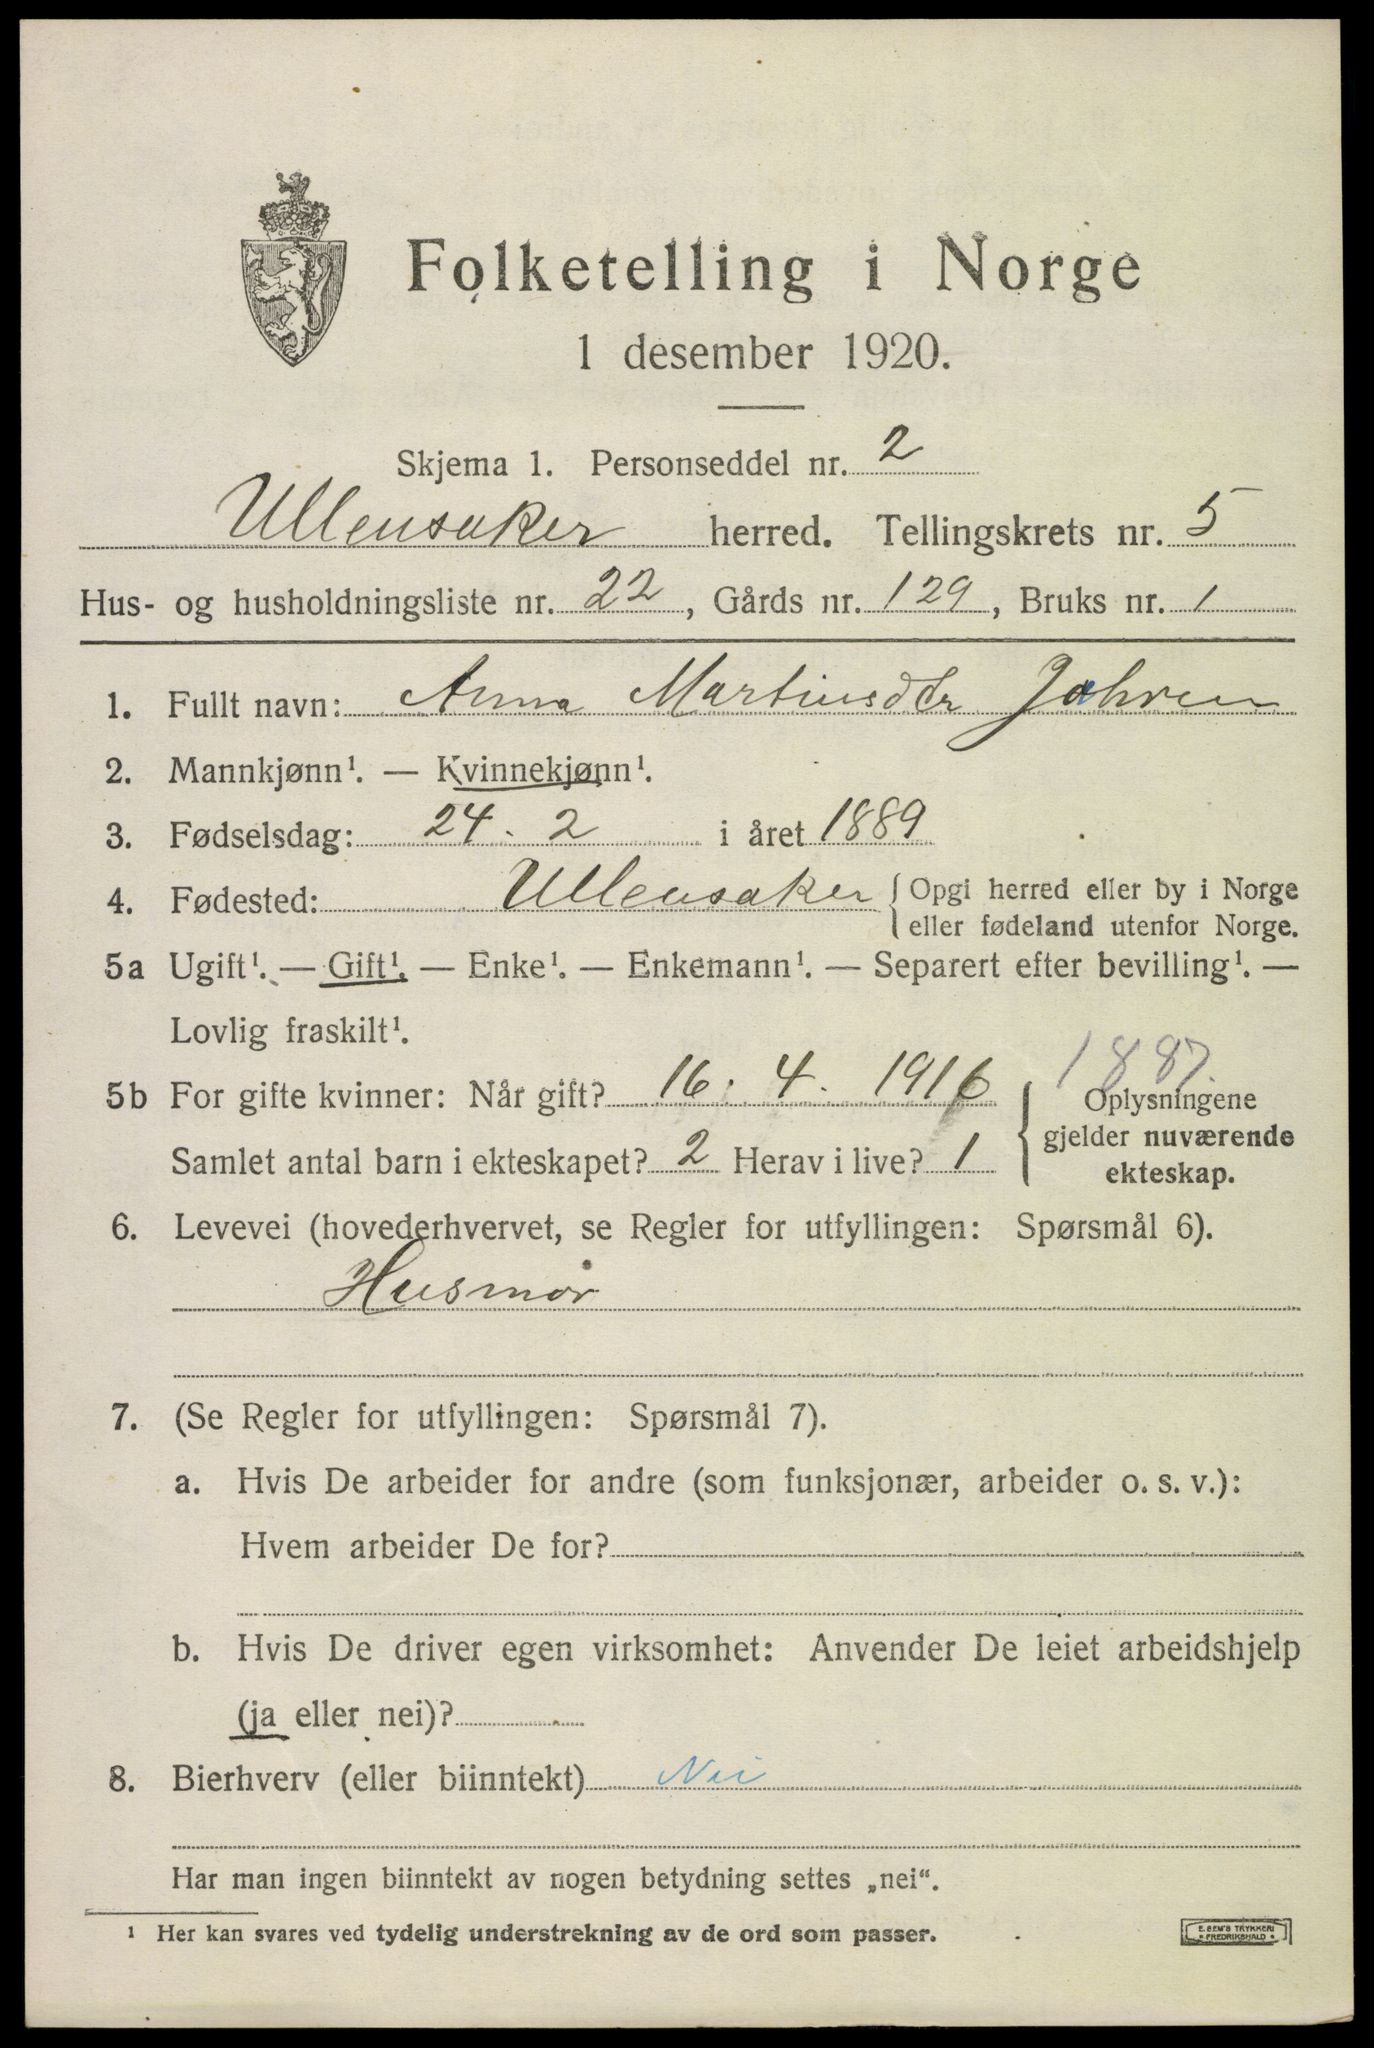 Folketelling i Norge
1 desember 1920.
Skjema 1. Personseddel nr. 2
Ullensaker herred. Tellingskrets nr. 5
Hus- og husholdningsliste nr. 22, Gårds nr. 129, Bruks nr. 1
1. Fullt navn: Anna Martinsdtr Jahren
2. Mannkjønn¹. — Kvinnekjønn¹.
3. Fødselsdag: 24. 2 i året 1889
4. Fødested: Ullensaker { Opgi herred eller by i Norge
eller fødeland utenfor Norge.
5a Ugift¹. — Gift¹. — Enke¹. — Enkemann¹. — Separert efter bevilling¹. —
Lovlig fraskilt¹.
1887.
5b For gifte kvinner: Når gift? 16. 4. 1916 { Oplysningene
gjelder nuværende
Samlet antal barn i ekteskapet? 2 Herav i live? 1
ekteskap.
6. Levevei (hovederhvervet, se Regler for utfyllingen: Spørsmål 6).
Husmor
7. (Se Regler for utfyllingen: Spørsmål 7).
a. Hvis De arbeider for andre (som funksjonær, arbeider o. s. v.):
Hvem arbeider De for?
b. Hvis De driver egen virksomhet: Anvender De leiet arbeidshjelp
(ja eller nei)?
8. Bierhverv (eller biinntekt) Nei
Har man ingen biinntekt av nogen betydning settes „nei“.
¹ Her kan svares ved tydelig understrekning av de ord som passer.
E. SEM'S TRYKKERI
• FREDRIKSHALD •